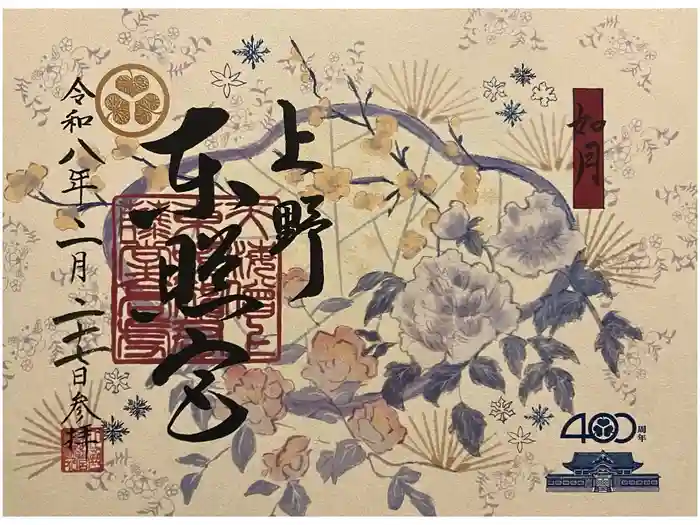 如月
上野
東照宮
令和八年二月二十七日参拝
400周年